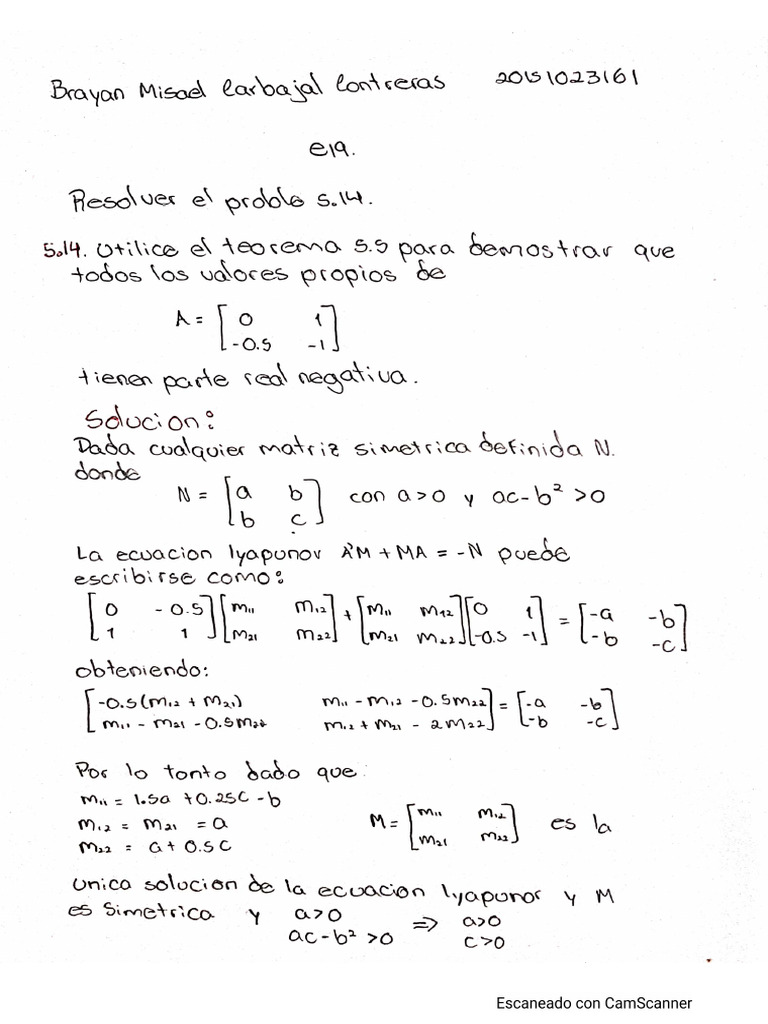 Brayan Misael Carbajal Contreras 20151023161
e19.
Resolver el problo 5.14.
5.14. Utilice el teorema 5.5 para demostrar que
todos los valores propios de
A = [0 1; -0.5 -1]
tienen parte real negativa.
Solucion:
Dada cualquier matriz simetrica definida N.
donde
N = [a b; b c] con a>0 y ac-b²>0
La ecuacion lyapunov A'M + MA = -N puede
escribirse como:
[0 -0.5; 1 1][m11 m12; m21 m22] + [m11 m12; m21 m22][0 1; -0.5 -1] = [-a -b; -b -c]
obteniendo:
[-0.5(m12 + m21) m11 - m12 - 0.5m22; m11 - m21 - 0.5m22 m12 + m21 - 2m22] = [-a -b; -b -c]
Por lo tonto dado que:
m11 = 1.5a + 0.25c - b
m12 = m21 = a M = [m11 m12; m21 m22] es la
m22 = a + 0.5c
unica solucion de la ecuacion lyapunov y M
es simetrica y a>0 ⇒ a>0
ac-b²>0 c>0
Escaneado con CamScanner